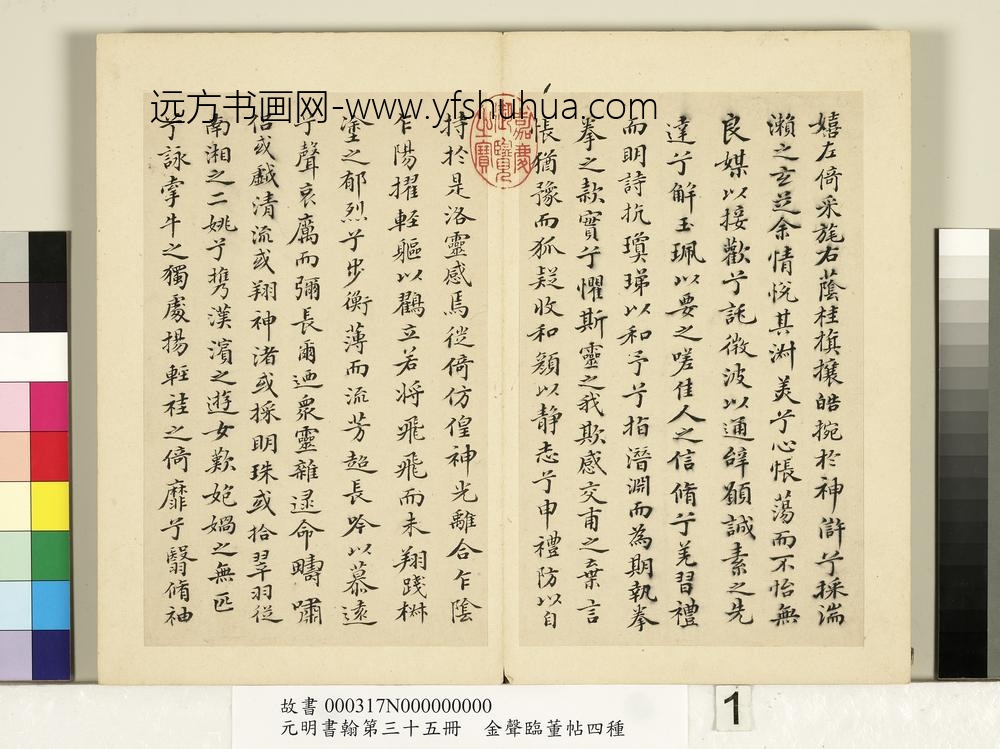 远方书画网-www.yfshuhua.com
嘉慶
御覽
之寶
嬉左倚采旄右蔭桂旗攘皓捥於神滸兮採湍
瀨之玄芝余情悅其淑美兮心悵蕩而不怡無
良媒以接歡兮託微波以通辭願誠素之先
達兮解玉珮以要之嗟佳人之信脩兮羌習禮
而明詩抗瓊珶以和予兮指潛淵而為期執拳
拳之款實兮懼斯靈之我欺感交甫之棄言
悵猶豫而狐疑收和顏以静志兮申禮防以自
持於是洛靈感焉從倚仿偟神光離合乍陰
乍陽擢輕軀以鸖立若將飛飛而未翔踐椒
塗之郁烈兮步衡薄而流芳超長吟以慕遠
兮聲哀厲而彌長爾迺衆靈雜逯命疇嘯
侣或戲清流或翔神渚或採明珠或拾翠羽從
南湘之二姚兮攜漢濱之遊女歎媲媧之無匹
兮詠牽牛之獨處揚輕袿之倚靡兮翳脩袖
故書 000317N000000000
元明書翰第三十五冊　金聲臨董帖四種
1